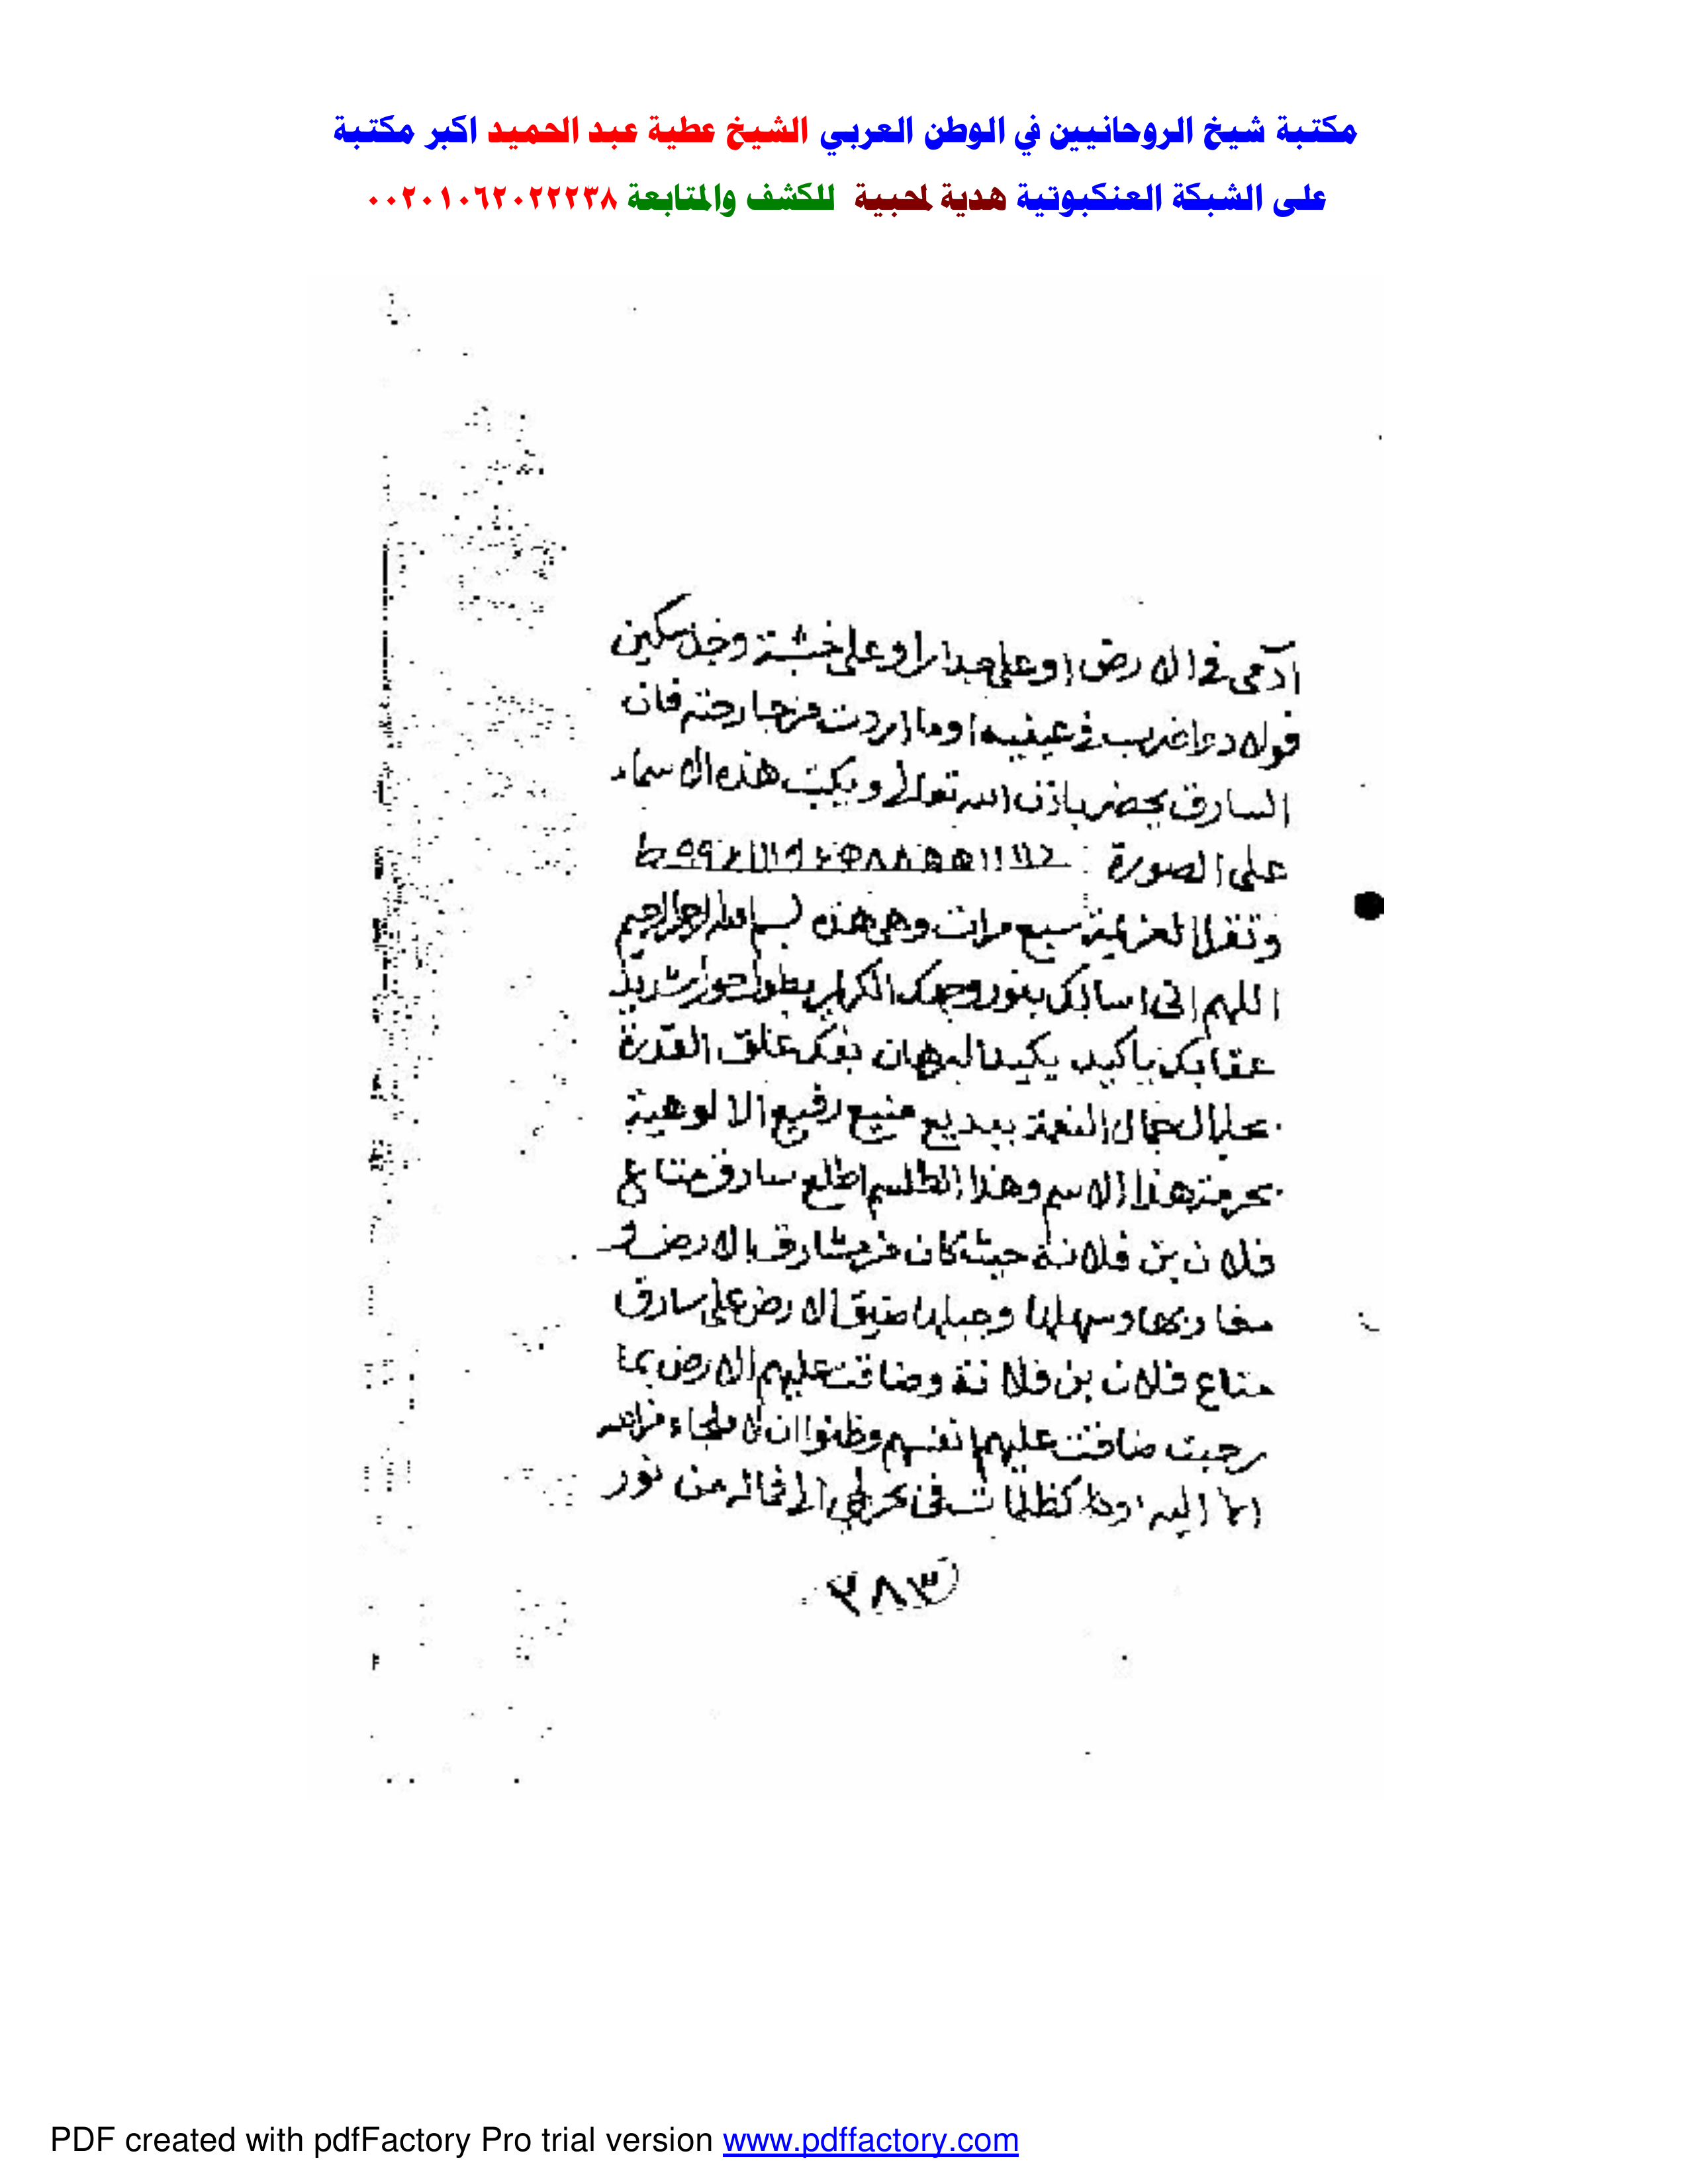 مكتبة شيخ الروحانيين في الوطن العربي الشيخ عطية عبد الحميد اكبر مكتبة
على الشبكة العنكبوتية هدية لمحبيه للكشف والمتابعة ٠٠٢٠١٠٦٢٠٢٢٢٣٨
ادمى فى الارض او على جدار او على خشبة وخذ سكين
فولاد واضرب فى عينيه او ما اردت من جارحته فان
السارق يحضر باذن الله تعالى ويكتب هذه الاسماء
على الصورة
وتقرا العزيمة سبع مرات وهى هذه بسم الله الرحمن الرحيم
اللهم انى اسالك بنور وجهك الكريم بطول حول شديد
عقابك ياكيد يكيد البرهان بفك غلق القدرة
النعمة ببديع منيع رفيع الالوهية
بحرمة هذا الاسم وهذا الطلسم اطلع سارق متاع
فلان بن فلانة حيث كان من مشارق الارض و
مغاربها وسهلها وجبلها ضيق الارض على سارق
متاع فلان بن فلانة وضاقت عليهم الارض بما
رحبت ضاقت عليهم انفسهم وظنوا ان لا ملجاء من الله
الا اليه او كظلمات فى بحر لجى الى فماله من نور
٣٨٣
PDF created with pdfFactory Pro trial version www.pdffactory.com